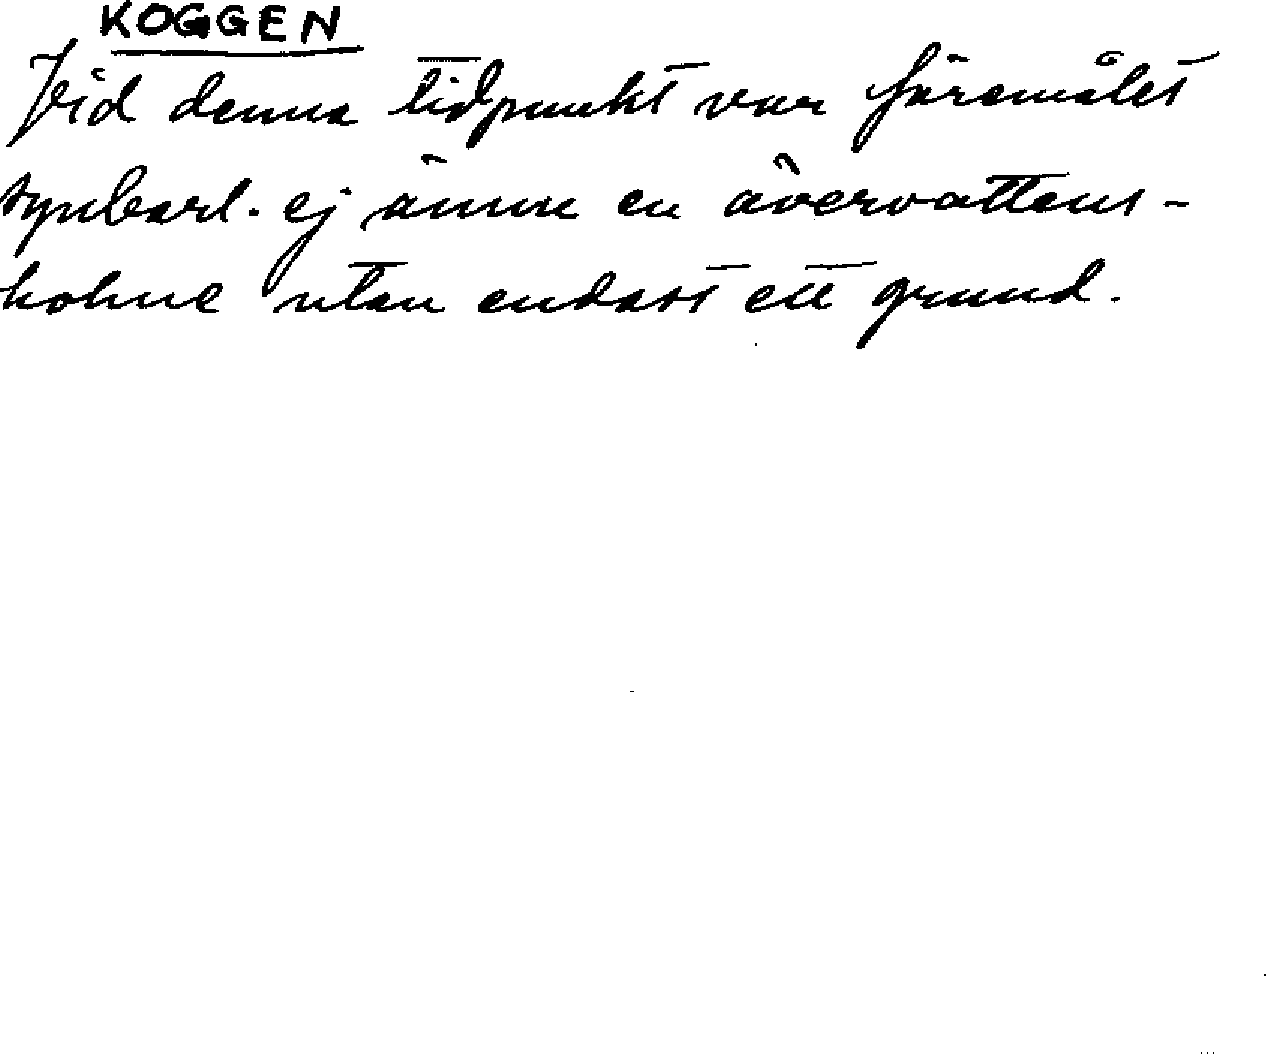 KOGGEN
Vid denna tidpunkt var föremålet
synbarl. ej ännu en övervattens-
holme utan endast ett grund.